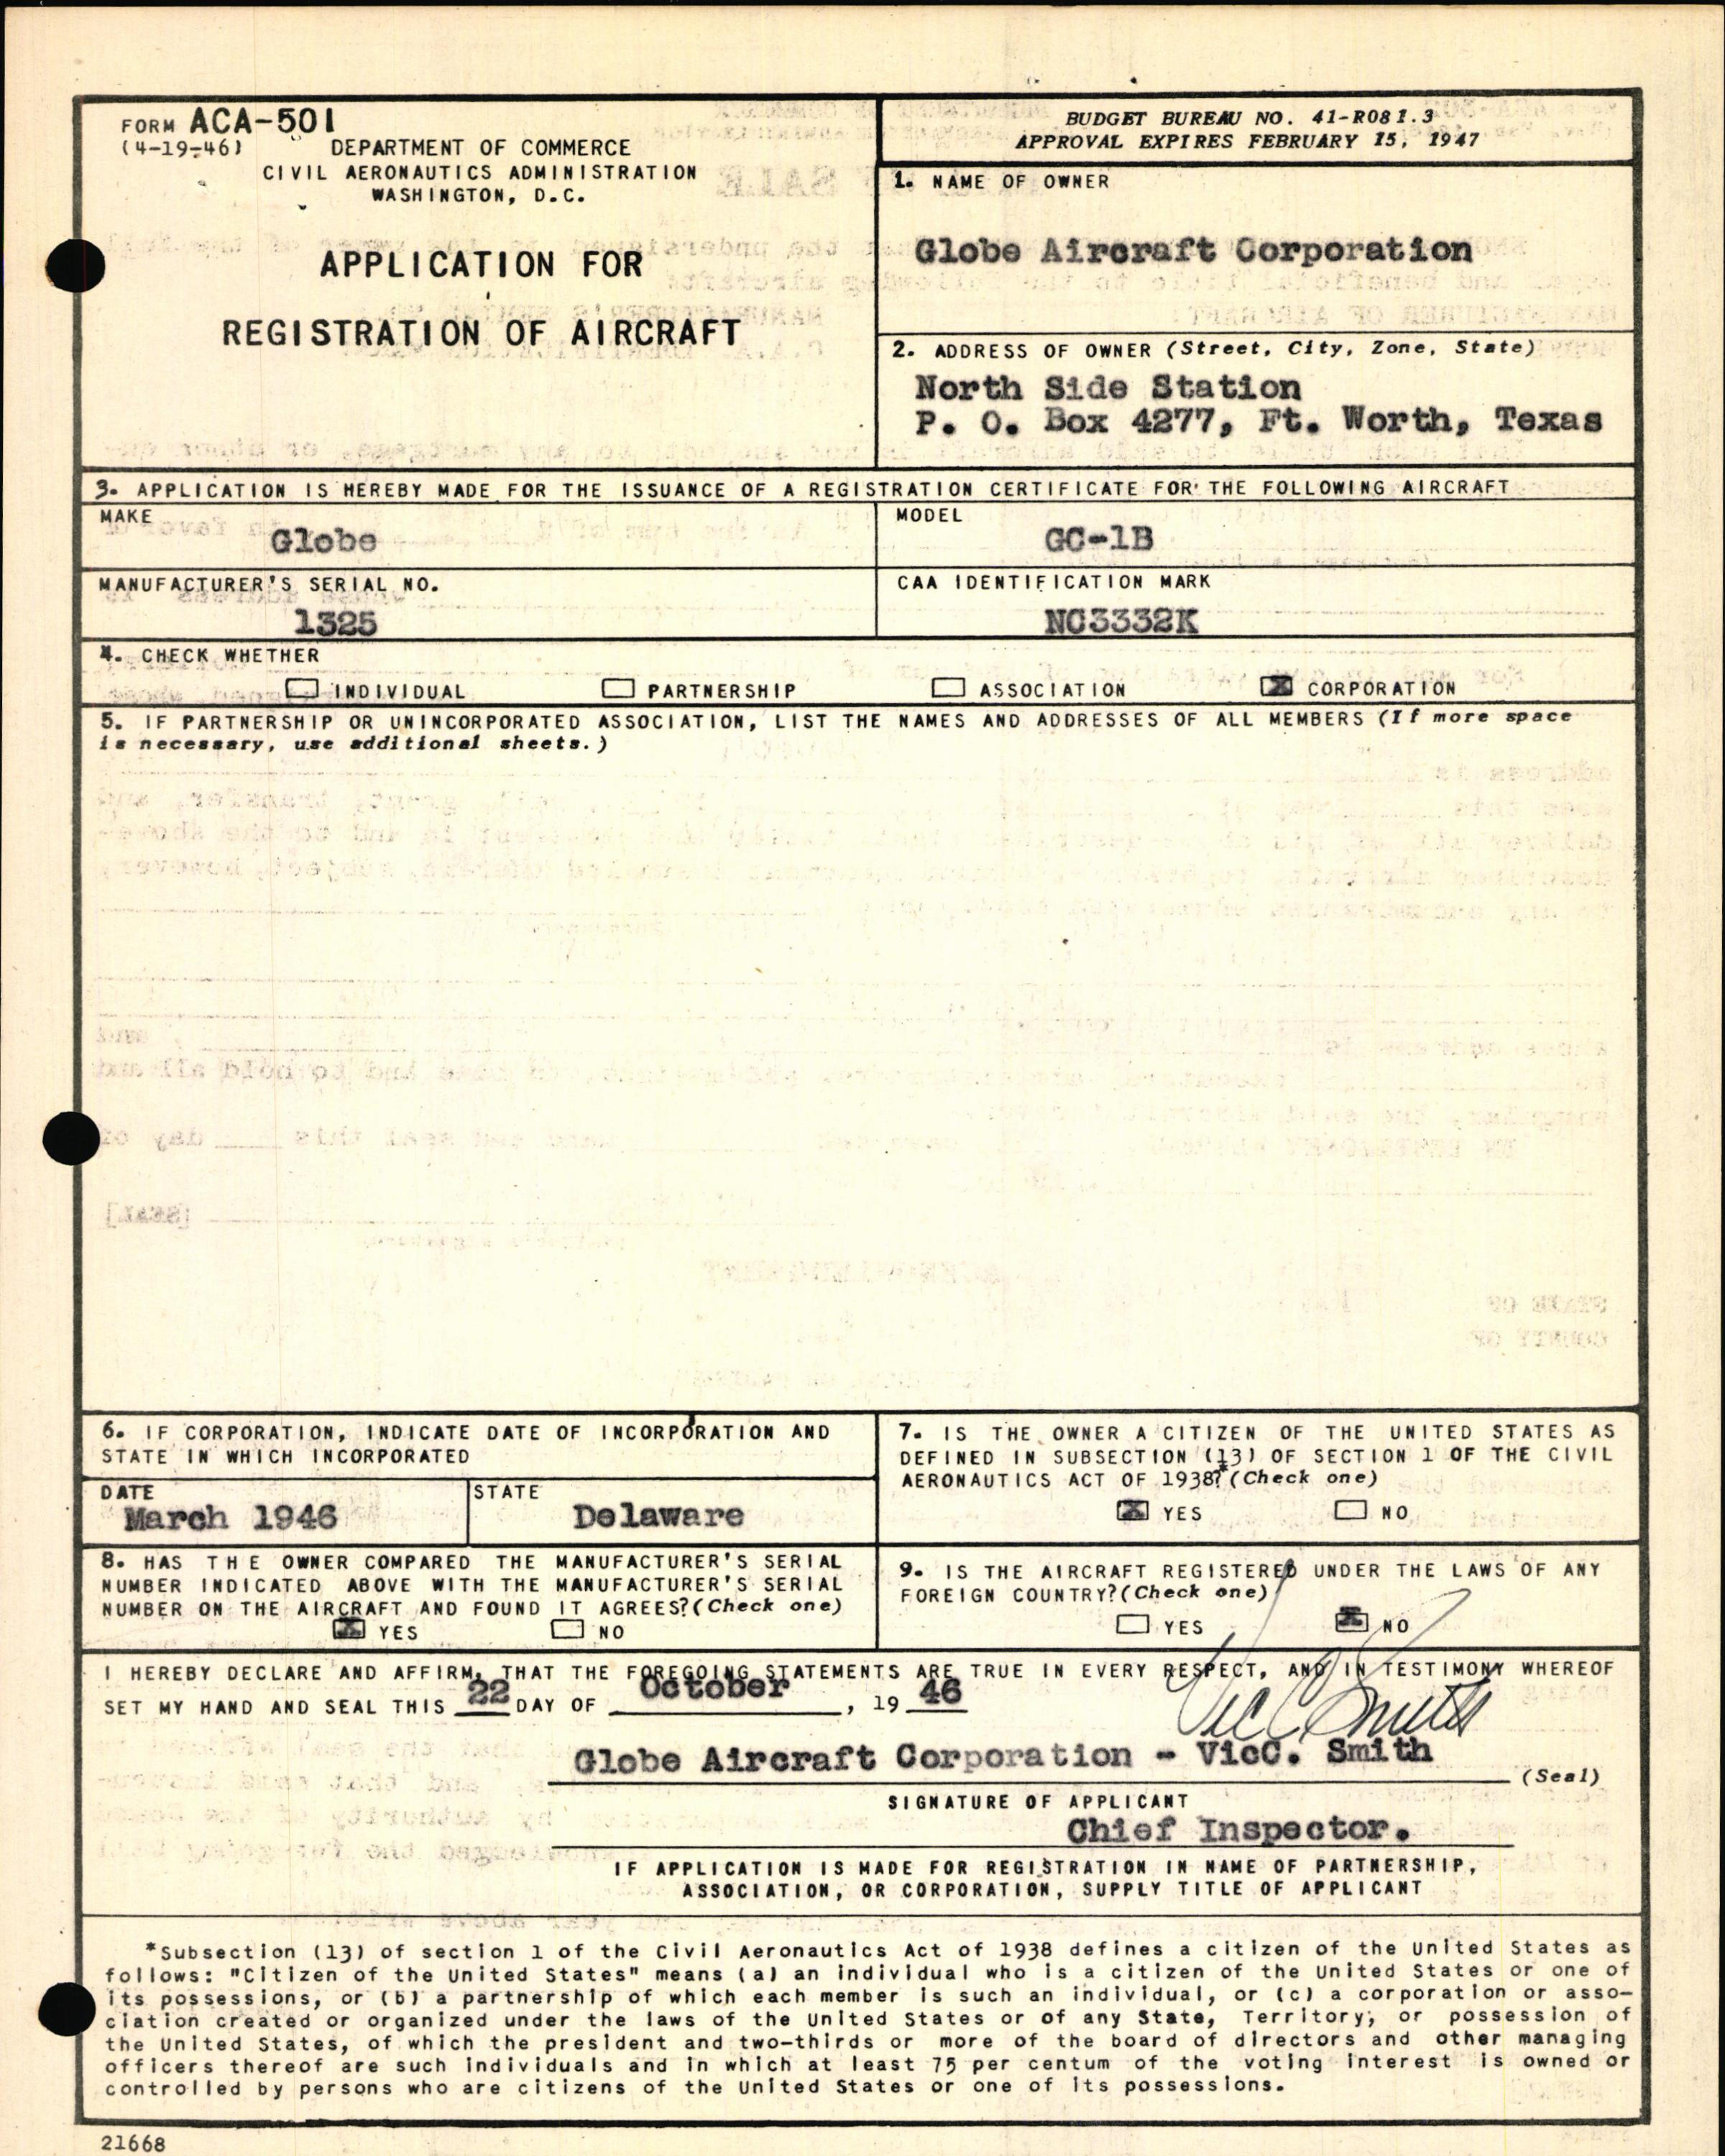 FORM ACA-501
(4-19-46)
DEPARTMENT OF COMMERCE
CIVIL AERONAUTICS ADMINISTRATION
WASHINGTON, D.C.
APPLICATION FOR
REGISTRATION OF AIRCRAFT
BUDGET BUREAU NO. 41-R081.3
APPROVAL EXPIRES FEBRUARY 15, 1947
1. NAME OF OWNER
Globe Aircraft Corporation
2. ADDRESS OF OWNER (Street, City, Zone, State)
North Side Station
P. O. Box 4277, Ft. Worth, Texas
3. APPLICATION IS HEREBY MADE FOR THE ISSUANCE OF A REGISTRATION CERTIFICATE FOR THE FOLLOWING AIRCRAFT
MAKE
Globe
MODEL
GC-1B
MANUFACTURER'S SERIAL NO.
1325
CAA IDENTIFICATION MARK
NC3332K
4. CHECK WHETHER
INDIVIDUAL PARTNERSHIP ASSOCIATION X CORPORATION
5. IF PARTNERSHIP OR UNINCORPORATED ASSOCIATION, LIST THE NAMES AND ADDRESSES OF ALL MEMBERS (If more space
is necessary, use additional sheets.)
6. IF CORPORATION, INDICATE DATE OF INCORPORATION AND
STATE IN WHICH INCORPORATED
DATE
March 1946
STATE
Delaware
7. IS THE OWNER A CITIZEN OF THE UNITED STATES AS
DEFINED IN SUBSECTION (13) OF SECTION 1 OF THE CIVIL
AERONAUTICS ACT OF 1938?* (Check one)
X YES NO
8. HAS THE OWNER COMPARED THE MANUFACTURER'S SERIAL
NUMBER INDICATED ABOVE WITH THE MANUFACTURER'S SERIAL
NUMBER ON THE AIRCRAFT AND FOUND IT AGREES? (Check one)
X YES NO
9. IS THE AIRCRAFT REGISTERED UNDER THE LAWS OF ANY
FOREIGN COUNTRY? (Check one)
YES X NO
I HEREBY DECLARE AND AFFIRM, THAT THE FOREGOING STATEMENTS ARE TRUE IN EVERY RESPECT, AND IN TESTIMONY WHEREOF
SET MY HAND AND SEAL THIS 22 DAY OF October, 19 46
Vic C Smith
Globe Aircraft Corporation - VicC. Smith
(Seal)
SIGNATURE OF APPLICANT
Chief Inspector.
IF APPLICATION IS MADE FOR REGISTRATION IN NAME OF PARTNERSHIP,
ASSOCIATION, OR CORPORATION, SUPPLY TITLE OF APPLICANT
*Subsection (13) of section 1 of the Civil Aeronautics Act of 1938 defines a citizen of the United States as
follows: "Citizen of the United States" means (a) an individual who is a citizen of the United States or one of
its possessions, or (b) a partnership of which each member is such an individual, or (c) a corporation or asso-
ciation created or organized under the laws of the United States or of any State, Territory, or possession of
the United States, of which the president and two-thirds or more of the board of directors and other managing
officers thereof are such individuals and in which at least 75 per centum of the voting interest is owned or
controlled by persons who are citizens of the United States or one of its possessions.
21668